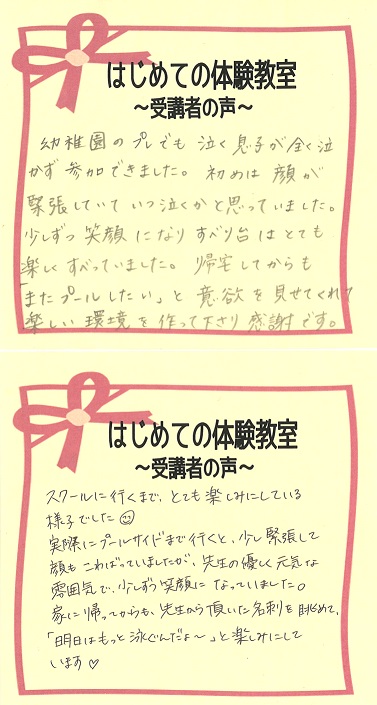 はじめての体験教室
～受講者の声～
幼稚園のプレでも泣く息子が全く泣
かず参加できました。初めは顔が
緊張していていつ泣くかと思っていました。
少しずつ笑顔になりすべり台はとても
楽しくすべっていました。帰宅してからも
「またプールしたい」と意欲を見せてくれて
楽しい環境を作って下さり感謝です。
はじめての体験教室
～受講者の声～
スクールに行くまで、とても楽しみにしている
様子でした☺
実際にプールサイドまで行くと、少し緊張して
顔もこわばっていましたが、先生の優しく元気な
雰囲気で、少しずつ笑顔になっていました。
家に帰ってからも、先生から頂いた名刺を眺めて、
「明日はもっと泳ぐんだよ～」と楽しみにして
います♡